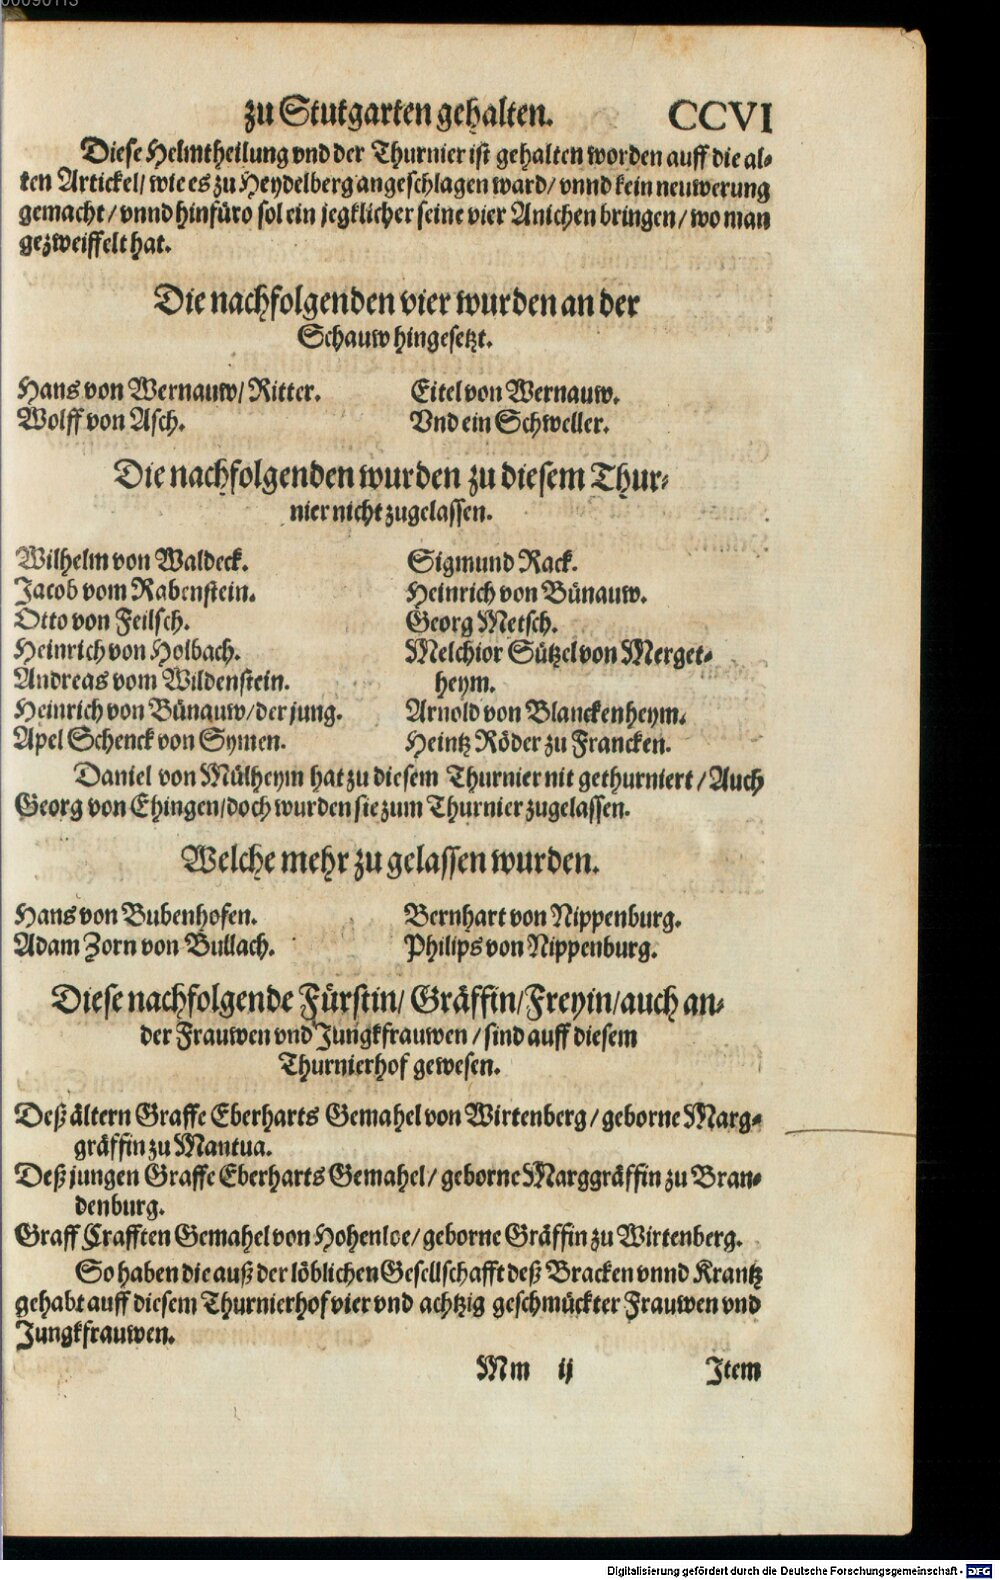 zu Stutgarten gehalten. CCVI
Diese Helmtheilung vnd der Thurnier ist gehalten worden auff die al-
ten Artickel/ wie es zu Heydelberg angeschlagen ward/ vnnd kein neuwerung
gemacht/ vnnd hinfüro sol ein jegklicher seine vier Anichen bringen/ wo man
gezweiffelt hat.
Die nachfolgenden vier wurden an der
Schauw hingesetzt.
Hans von Wernauw/ Ritter.
Wolff von Asch.
Eitel von Wernauw.
Vnd ein Schweller.
Die nachfolgenden wurden zu diesem Thur-
nier nicht zugelassen.
Wilhelm von Waldeck.
Jacob vom Rabenstein.
Otto von Feilsch.
Heinrich von Holbach.
Andreas vom Wildenstein.
Heinrich von Bünauw/ der jung.
Apel Schenck von Symen.
Sigmund Rack.
Heinrich von Bünauw.
Georg Metsch.
Melchior Sützel von Merget-
heym.
Arnold von Blanckenheym.
Heintz Röder zu Francken.
Daniel von Mülheym hat zu diesem Thurnier nit gethurniert/ Auch
Georg von Ehingen/ doch wurden sie zum Thurnier zugelassen.
Welche mehr zu gelassen wurden.
Hans von Bubenhofen.
Adam Zorn von Bullach.
Bernhart von Nippenburg.
Philips von Nippenburg.
Diese nachfolgende Fürstin/ Gräffin/ Freyin/ auch an-
der Frauwen vnd Jungkfrauwen/ sind auff diesem
Thurnierhof gewesen.
Deß ältern Graffe Eberharts Gemahel von Wirtenberg/ geborne Marg-
gräffin zu Mantua.
Deß jungen Graffe Eberharts Gemahel/ geborne Marggräffin zu Bran-
denburg.
Graff Crafften Gemahel von Hohenloe/ geborne Gräffin zu Wirtenberg.
So haben die auß der löblichen Gesellschafft deß Bracken vnnd Krantz
gehabt auff diesem Thurnierhof vier vnd achtzig geschmückter Frauwen vnd
Jungkfrauwen.
Mm ij Item
Digitalisierung gefördert durch die Deutsche Forschungsgemeinschaft - DFG